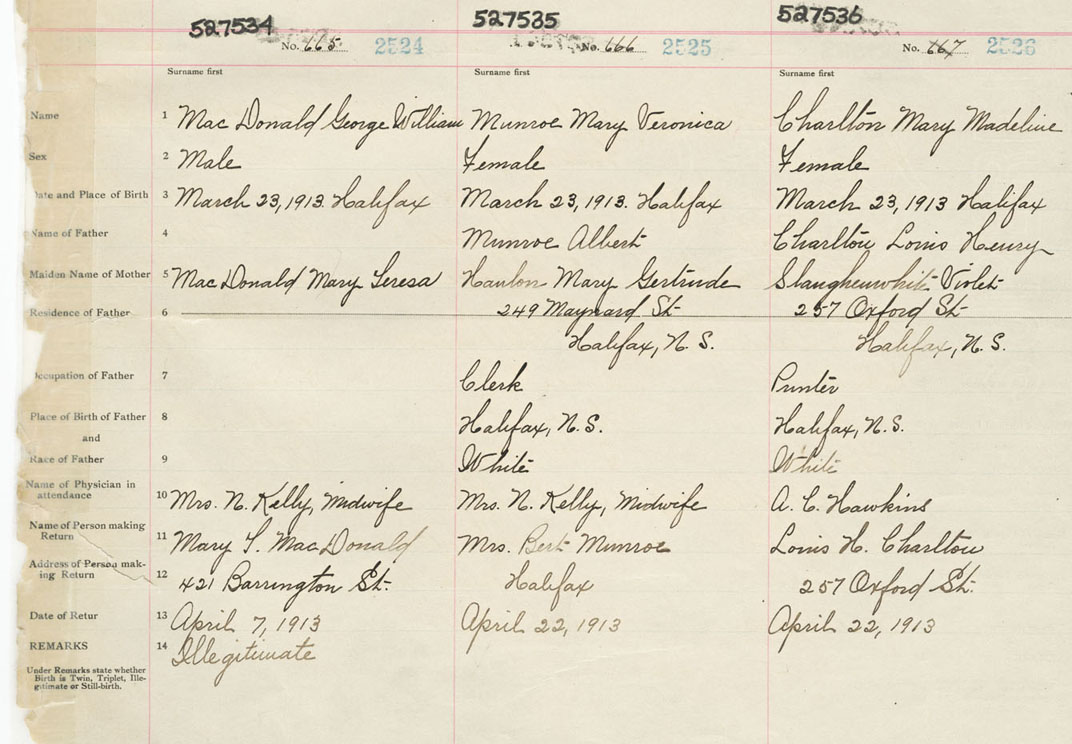 527534 527535 527536
No. 665 2524 No. 666 2525 No. 667 2526
Surname first Surname first Surname first
Name 1 Mac Donald George William Munroe Mary Veronica Charlton Mary Madeline
Sex 2 Male Female Female
Date and Place of Birth 3 March 23, 1913. Halifax March 23, 1913. Halifax March 23, 1913 Halifax
Name of Father 4 Munroe Albert Charlton Louis Henry
Maiden Name of Mother 5 Mac Donald Mary Teresa Hanlon Mary Gertrude Slaughenwhite Violet
Residence of Father 6 249 Maynard St. 257 Oxford St.
Halifax, N.S. Halifax, N.S.
Occupation of Father 7 Clerk Printer
Place of Birth of Father 8 Halifax, N.S. Halifax, N.S.
and
Race of Father 9 White White
Name of Physician in
attendance 10 Mrs. N. Kelly, Midwife Mrs. N. Kelly, Midwife A. C. Hawkins
Name of Person making
Return 11 Mary T. Mac Donald Mrs. Bert Munroe Louis H. Charlton
Address of Person mak-
ing Return 12 421 Barrington St. Halifax 257 Oxford St.
Date of Retur 13 April 7, 1913 April 22, 1913 April 22, 1913
REMARKS 14 Illegitimate
Under Remarks state whether
Birth is Twin, Triplet, Ille-
gitimate or Still-birth.